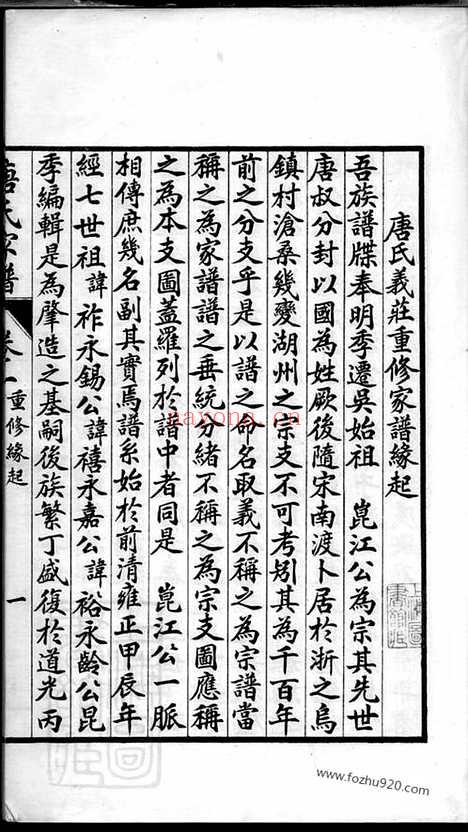 唐氏義莊重修家譜緣起
吾族譜牒奉明季遷吳始祖 崑江公為宗其先世
唐叔分封以國為姓厥後隨宋南渡卜居於浙之烏
鎮村滄桑幾變湖州之宗支不可考矧其為千百年
前之分支乎是以譜之命名取義不稱之為宗譜當
稱之為家譜譜之垂統分緒不稱之為宗支圖應稱
之為本支圖蓋羅列於譜中者同是 崑江公一脈
相傳庶幾名副其實焉譜系始於前清雍正甲辰年
經七世祖諱祚永錫公諱禧永嘉公諱裕永齡公昆
季編輯是為肇造之基嗣後族繁丁盛復於道光丙
唐氏家譜
卷一
重修緣起
一
nayong.cn
www.fozhu920.com